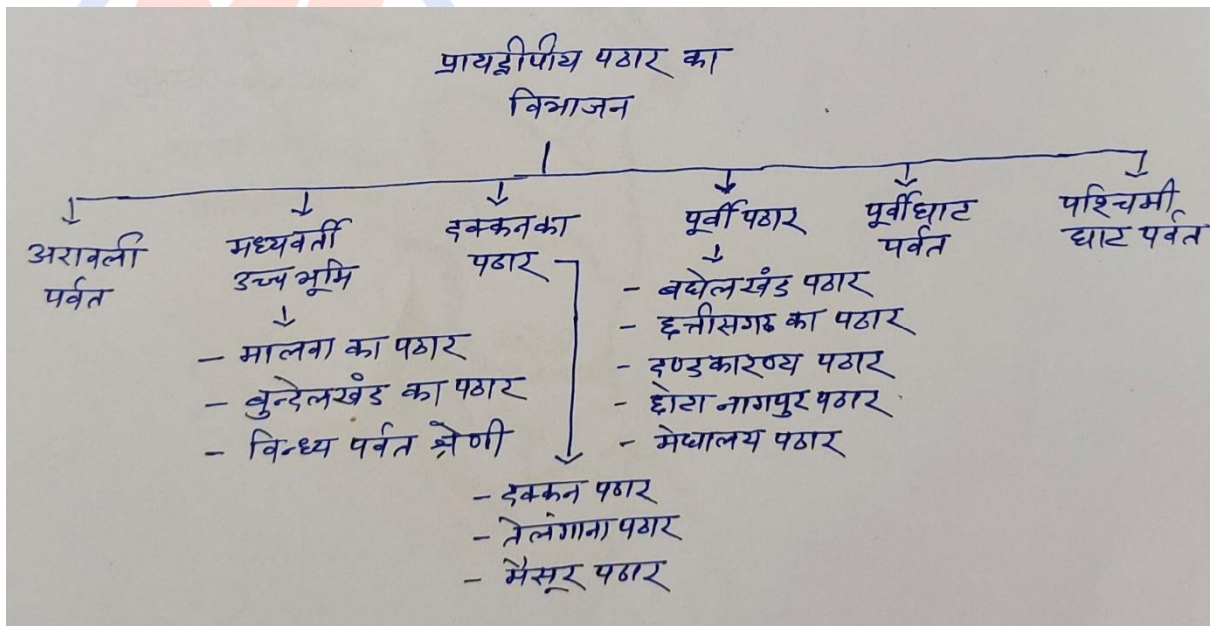 प्रायद्वीपीय पठार का
विभाजन
अरावली
पर्वत
मध्यवर्ती
उच्च भूमि
- मालवा का पठार
- बुन्देलखंड का पठार
- विन्ध्य पर्वत श्रेणी
दक्कन का
पठार
- दक्कन पठार
- तेलंगाना पठार
- मैसूर पठार
पूर्वी पठार
- बघेलखंड पठार
- छत्तीसगढ का पठार
- दण्डकारण्य पठार
- छोटा नागपुर पठार
- मेघालय पठार
पूर्वी घाट
पर्वत
पश्चिमी
घाट पर्वत